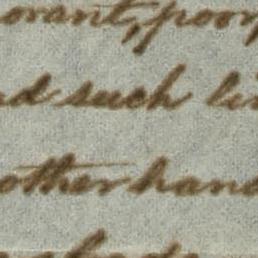 orant, poor
d such li
other hand